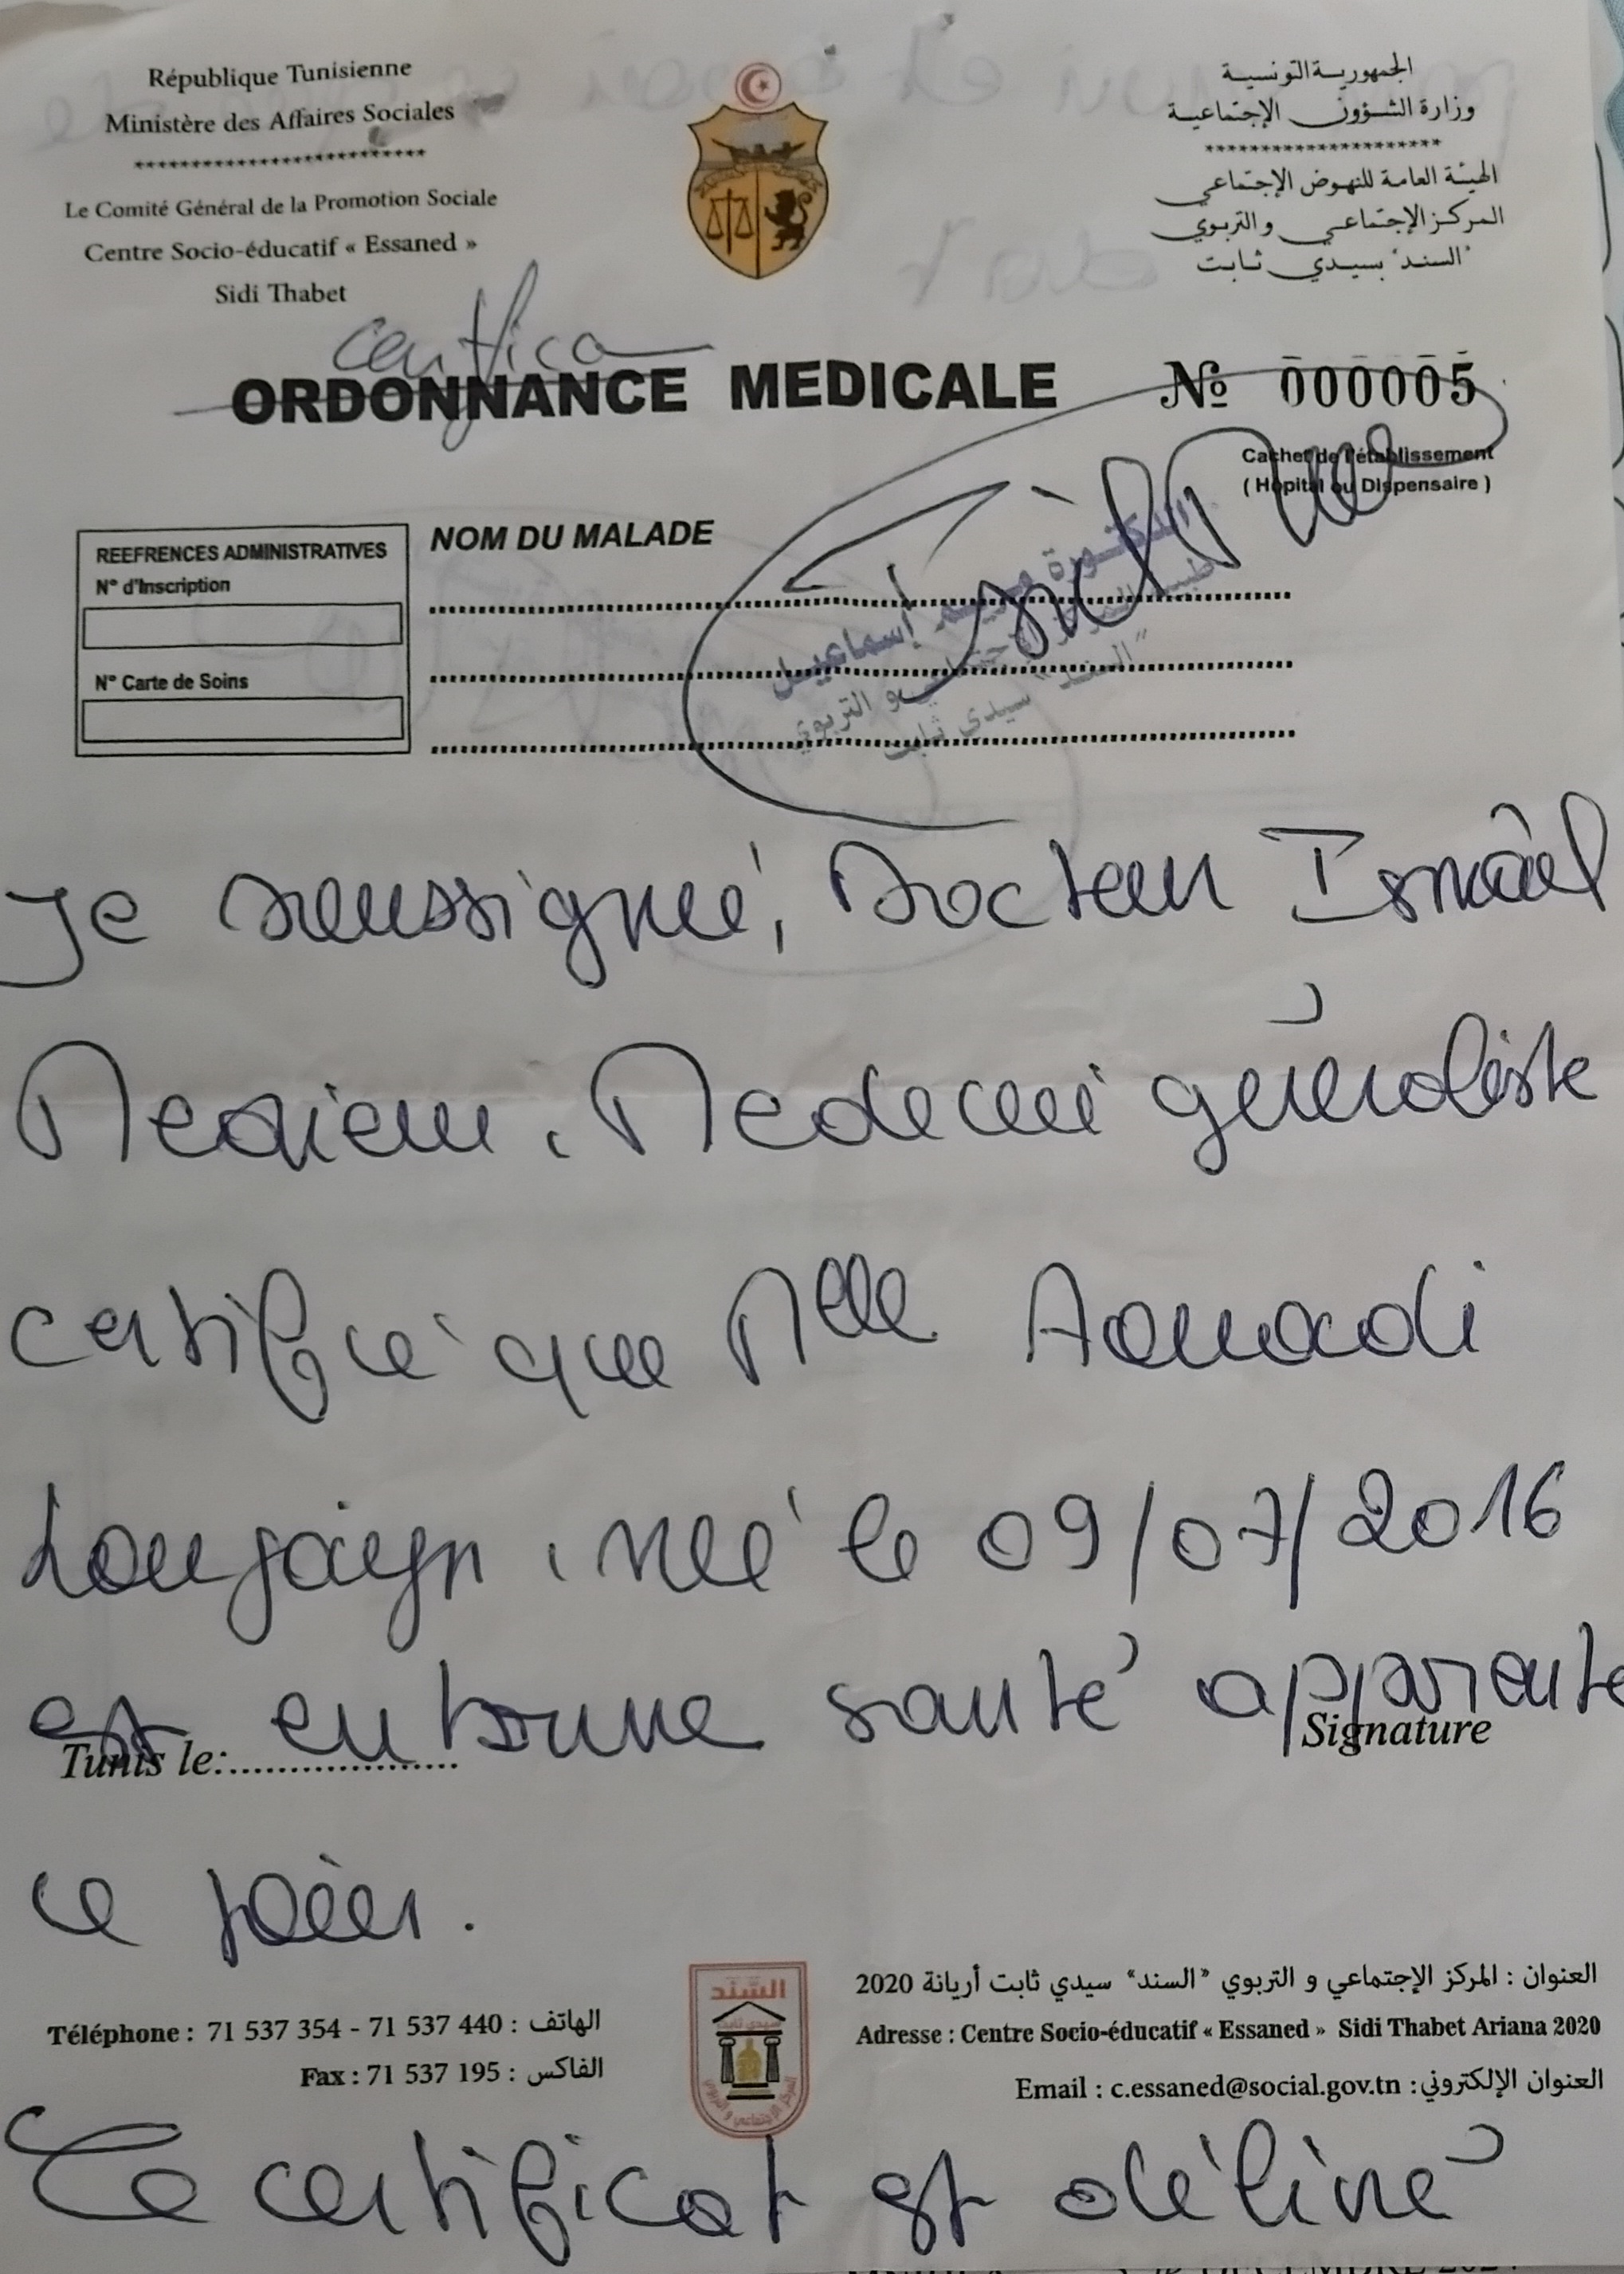 République Tunisienne
Ministère des Affaires Sociales
**************************
Le Comité Général de la Promotion Sociale
Centre Socio-éducatif « Essaned »
Sidi Thabet
الجمهورية التونسية
وزارة الشؤون الإجتماعية
*********************
الهيئة العامة للنهوض الإجتماعي
المركز الإجتماعي و التربوي
"السند" بسيدي ثابت
ORDONNANCE MEDICALE
№ 000005
Cachet de l'établissement
( Hôpital ou Dispensaire )
REEFRENCES ADMINISTRATIVES
N° d'Inscription
N° Carte de Soins
NOM DU MALADE
الدكتورة مريم إسماعيل
و التربوي
"السند" سيدي ثابت
Je soussigné, Docteur Ismàël
Meriem, Medecin généraliste
certifié que Mlle Aouadi
Loujayn, née le 09/07/2016
est en bonne santé apparente
Tunis le:...................
Signature
ce jour.
Téléphone : 71 537 354 - 71 537 440 : الهاتف
Fax : 71 537 195 : الفاكس
السند
سيدي ثابت
المركز الإجتماعي و التربوي
العنوان : المركز الإجتماعي و التربوي "السند" سيدي ثابت أريانة 2020
Adresse : Centre Socio-éducatif « Essaned » Sidi Thabet Ariana 2020
Email : c.essaned@social.gov.tn :العنوان الإلكتروني
Ce certificat est délivré